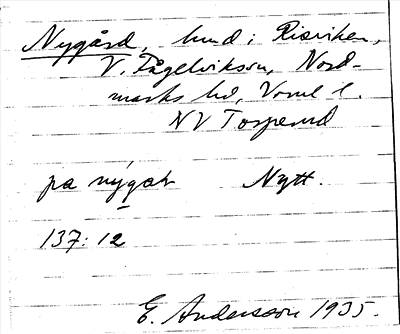 Nygård, hmd i Risviken,
V. Fågelviks sn, Nord-
marks hd, Vrml l.
NV Torperud
pa nýgaʈ Nytt.
137:12
E. Andersson 1935.